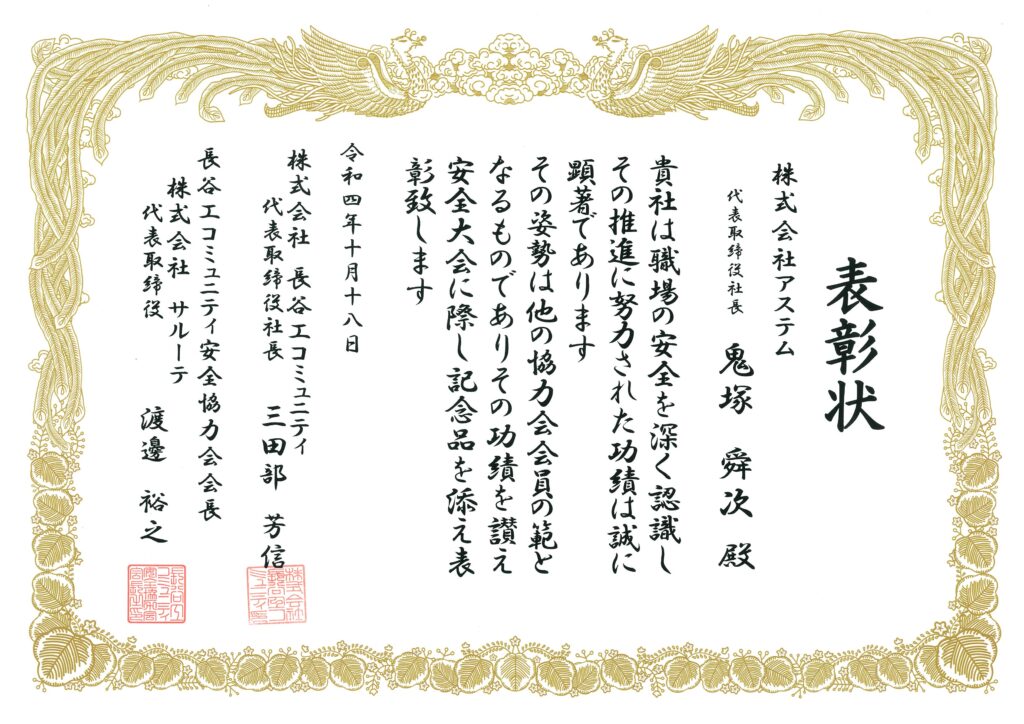 表彰状
株式会社アステム
代表取締役社長 鬼塚 舜次 殿
貴社は職場の安全を深く認識し
その推進に努力された功績は誠に
顕著であります
その姿勢は他の協力会会員の範と
なるものでありその功績を讃え
安全大会に際し記念品を添え表
彰致します
令和四年十月十八日
株式会社 長谷工コミュニティ
代表取締役社長 三田部 芳信
長谷工コミュニティ安全協力会会長
株式会社 サルーテ
代表取締役 渡邊 裕之